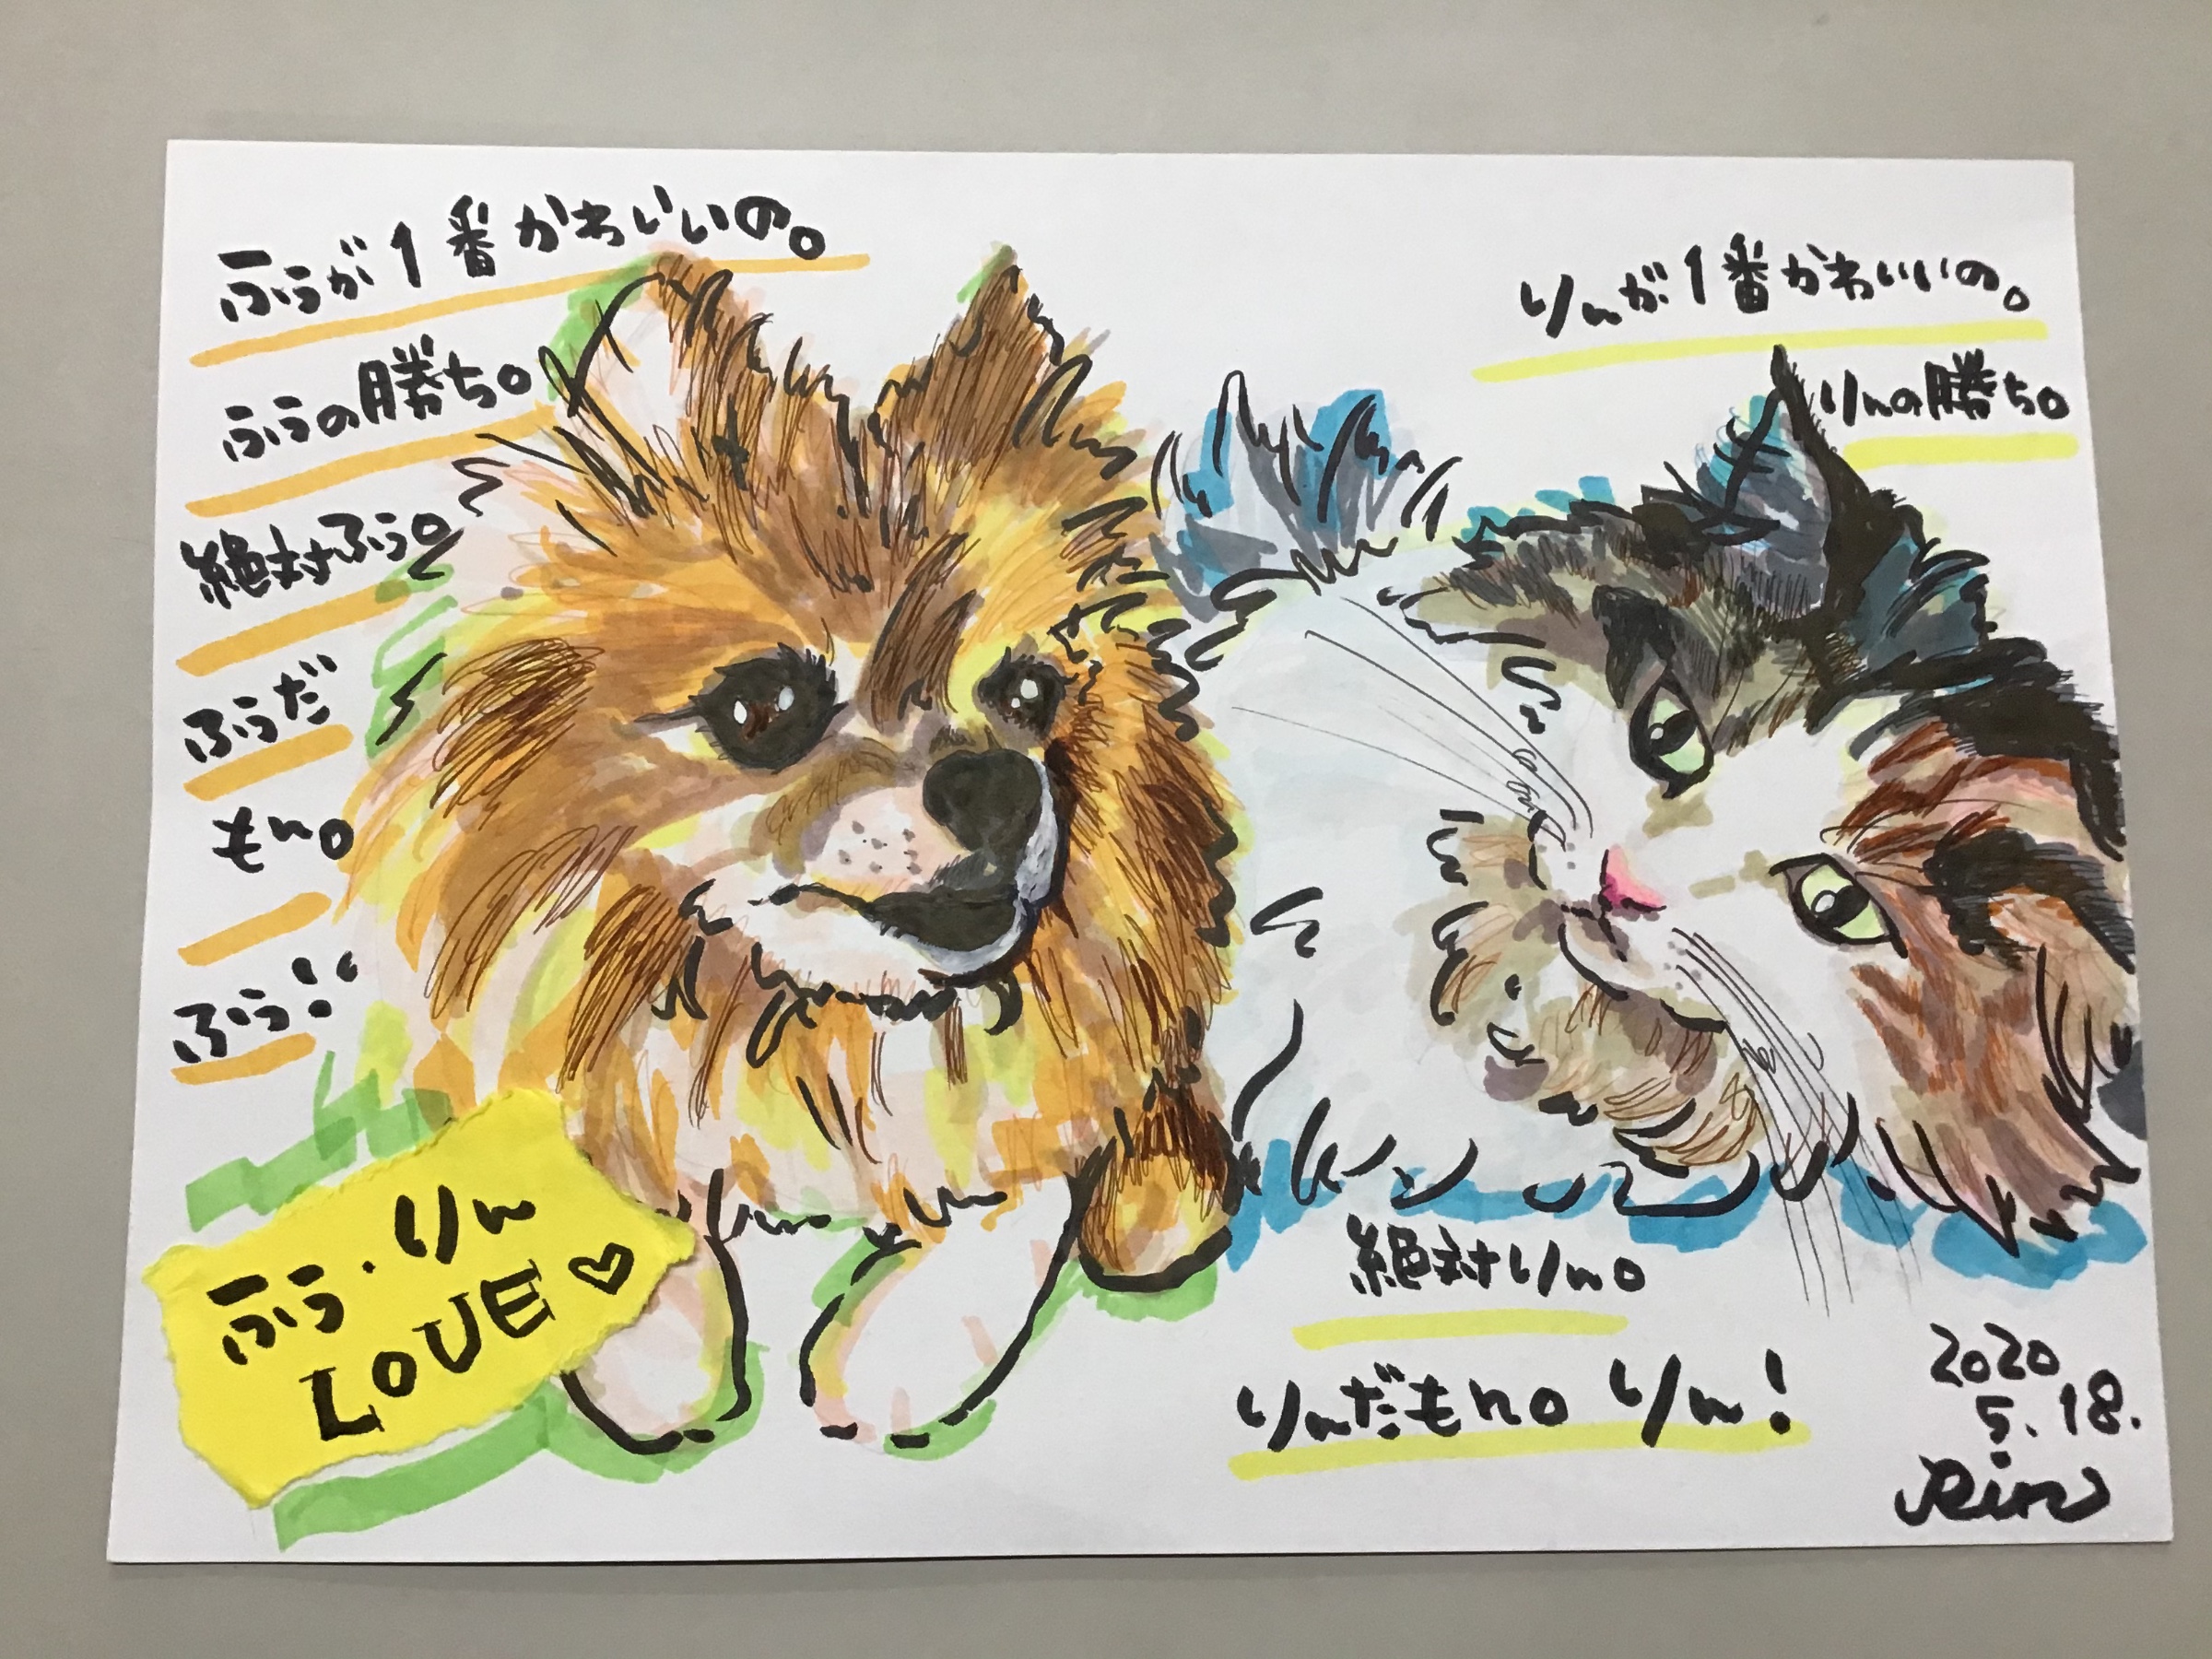 ふうが1番かわいいの。
ふうの勝ち。
絶対ふう。
ふうだ
もん。
ふう!!
ふう・りん
LOVE♡
りんが1番かわいいの。
りんの勝ち。
絶対りん。
りんだもん。りん!
2020
5.18.
Rin